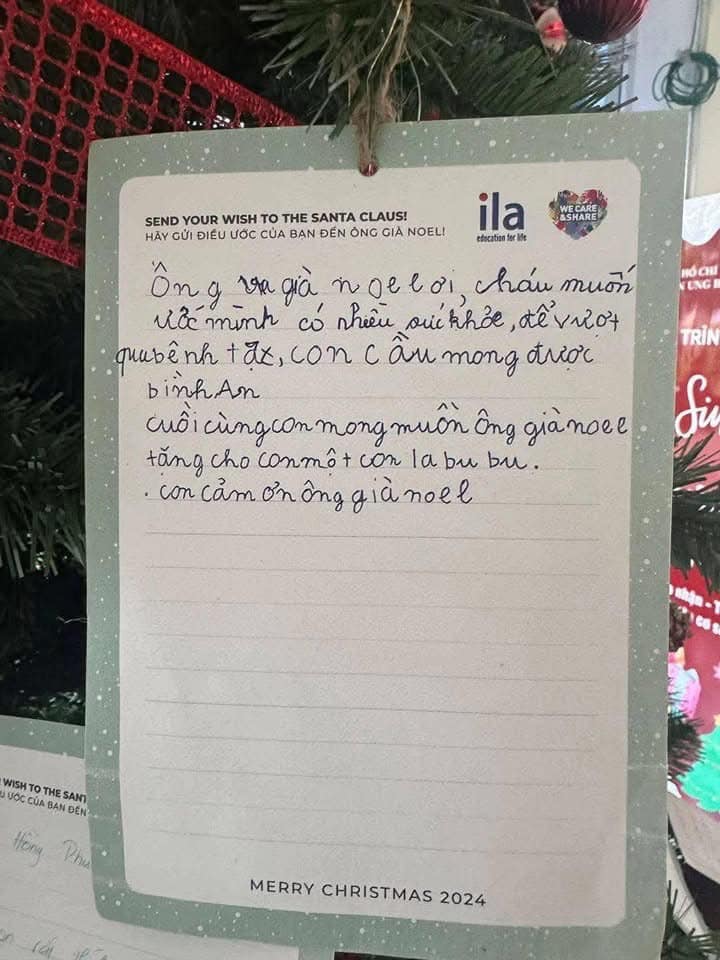 SEND YOUR WISH TO THE SANTA CLAUS!
HÃY GỬI ĐIỀU ƯỚC CỦA BẠN ĐẾN ÔNG GIÀ NOEL!
ila
education for life
WE CARE
&SHARE
Ông già noel ơi, cháu muốn
ước mình có nhiều sức khỏe, để vượt
qua bệnh tật, con cầu mong được
bình An
cuối cùng con mong muốn ông già noel
tặng cho con một con la bu bu.
. con cảm ơn ông già noel
MERRY CHRISTMAS 2024
WISH TO THE SANT
ƯỚC CỦA BẠN ĐẾN
Hồng
HỒ CHÍ
UNG B
TRÌN
nhận - T
cơ s